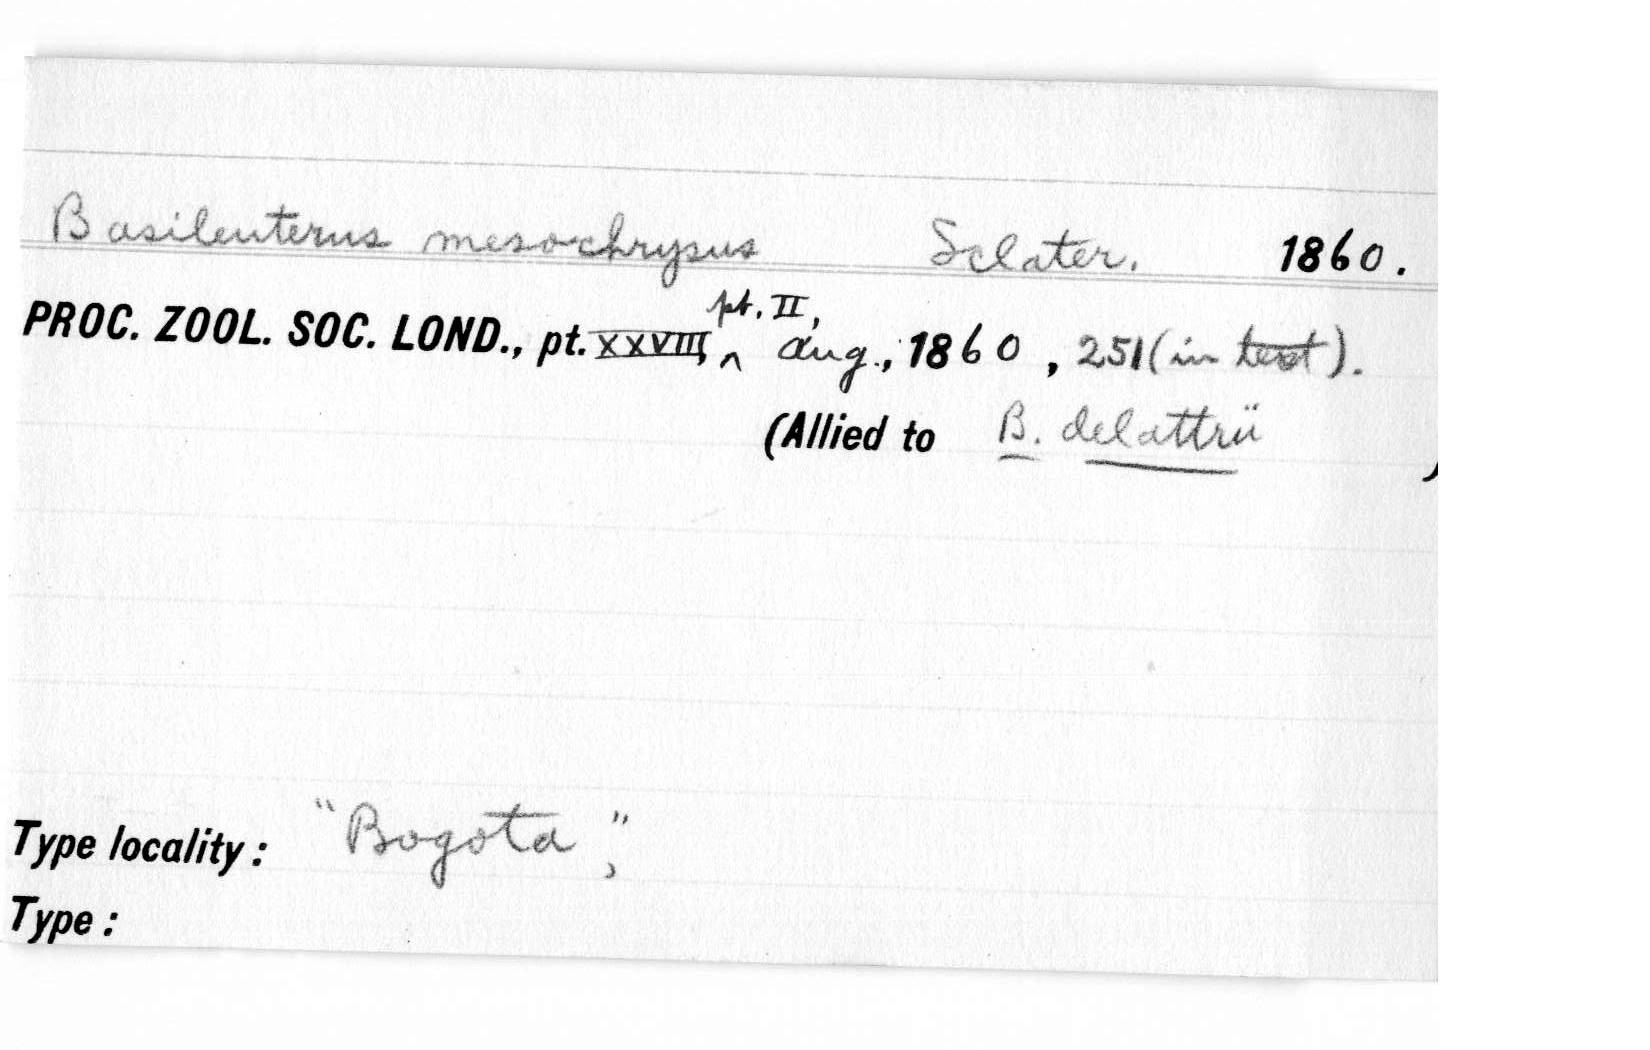 Basileuterus mesochrysus Sclater. 1860.
pt. II,
PROC. ZOOL. SOC. LOND., pt. XXVIII, ^ Aug., 1860, 251 (in text).
(Allied to B. delattrii )
Type locality: "Bogota,"
Type: